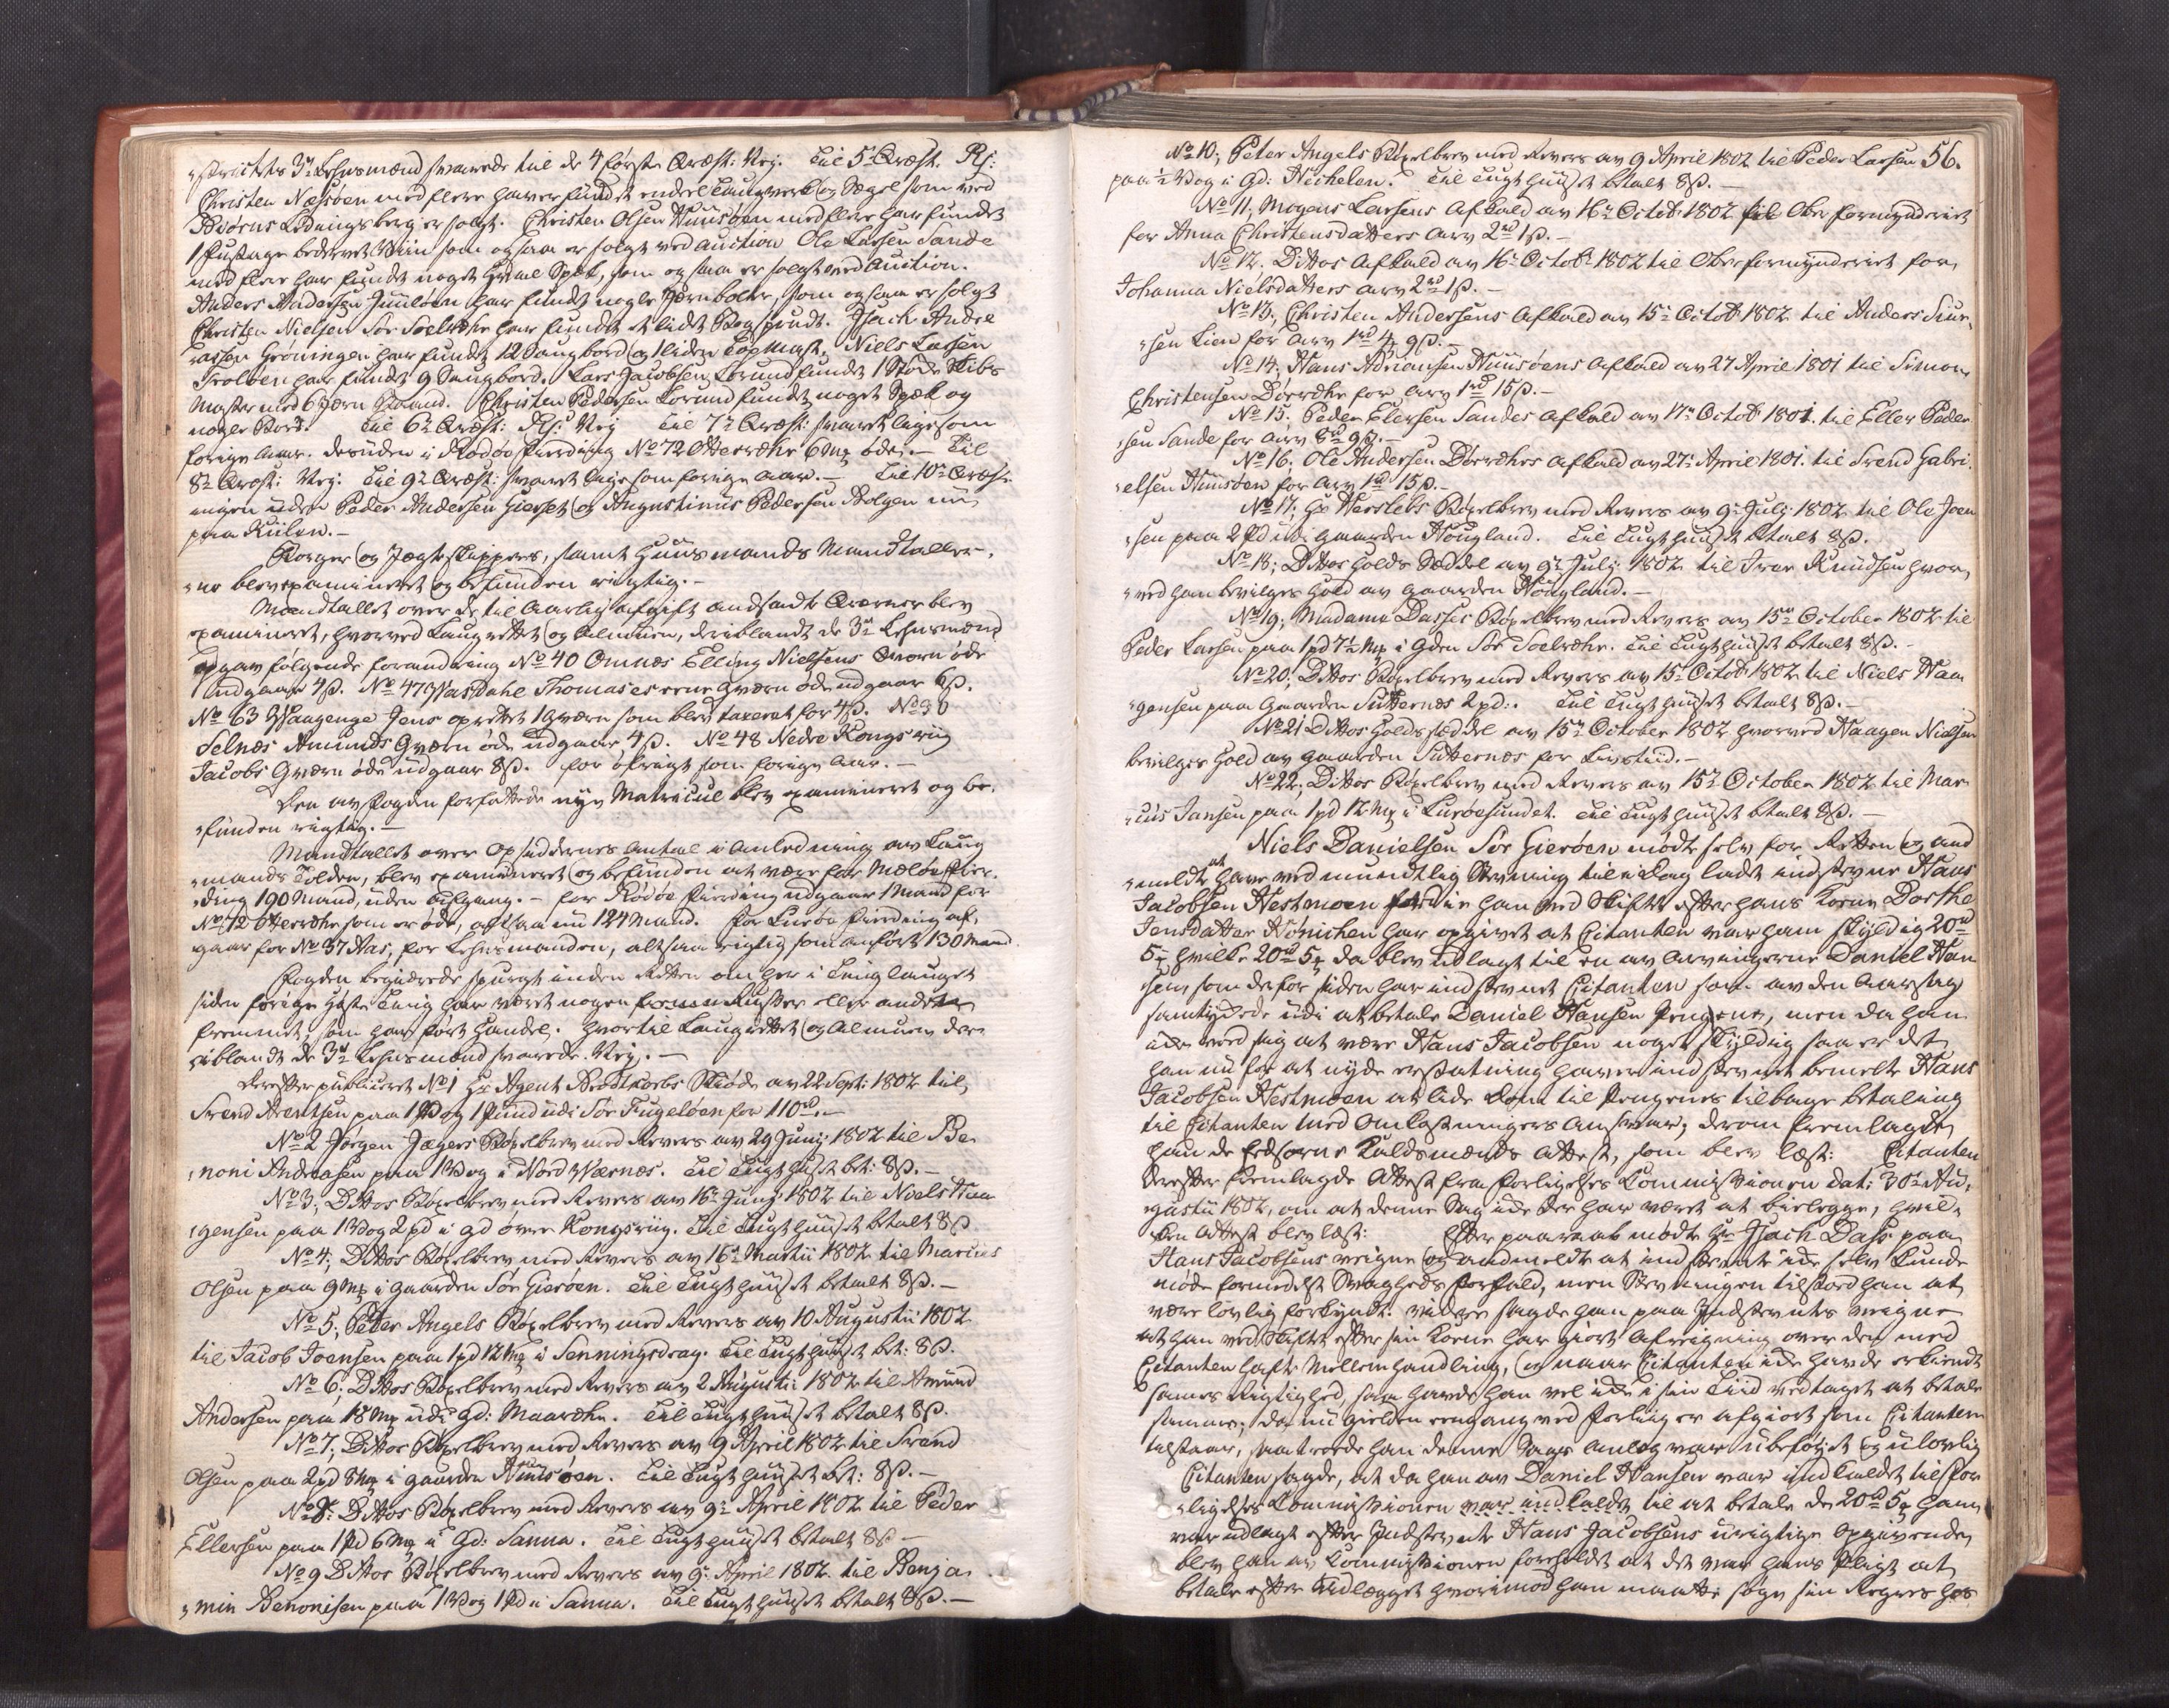 districtets 3de Lehnsmænd svarede til de 4 første Qvæst: Nej. Til 5te Qvæst. Rs:
Christen Næssøen med flere haver fundet endel Taugverk og Segel som ved
Biørns Ladningsberg er solgt. Christen Olsen Huusøen med flere har fundet
1 Fustage bedervet Viin som ogsaa er solgt ved auction Ole Larsen Sande
med flere har fundet noget Hval Spek, som og saa er solgt ved Auction.
Anders Andersen har fundet nogle Jernbolter, som ogsaa er solgt
Christen Nielsen Sør Solvær har fundet et lidet Bogsprudt. Isach Andre
assen Grønningen har fundet 12 Saugbord og 1 liden Topmast. Niels Larsen
Troløen har fundet 9 Saugbord. Lars Jacobsen Lovund fundet 1 Støcke Skibs
Mast med 6 Jern Baand. Christen Pedersen Lovund fundet noget Spek og
nogle Bord. Til 6te Qvæst: Rs: Nej Til 7de Qvæst: svaret ligesom
forige Aar. desuden i Rødøe Fierding No 72 Otterværk 6 mk øde. — Til
8de Qvæst: Nej. Til 9de Qvæst: svaret ligesom forige Aar. — Til 10de Qvæst:
ingen uden Peder Andersen Gierset og Augustinus Pedersen Bolgen nu
paa Kiilen. —
Borger og Jægteskippers, samt Huusmands Mandtaller-
ne blev examineret og befunden rigtig. —
Mandtallet over de til Aarlig afgift andsadte Qværner blev
examineret, hvorved Laugrettet og Almuen, deriblandt de 3de Lehnsmænd
opgav følgende forandring No 40 Omnæs Elling Nielsens Qværn øde
udgaar 4 s. No 47 Wasdahl Thomases eene Qværn øde udgaar 8 s.
No 63 Waagenge Jens oprettet 1 Qværn som blev taxeret for 4 s. No 30
Selnæs Amunds Qværn øde udgaar 4 s. No 48 Nedre Kongsvig
Jacobs Qværn øde udgaar 8 s. for øfrigt som forige Aar. —
Den av Fogden forfattede nye Matricul blev examineret og be-
funden rigtig. —
Mandtallet over Opsiddernes Antal i Anledning av Laug
mands Tolden, blev examineret og befunden at være for Meløe Fier-
ding 190 Mand, uden Afgang. — for Rødøe Fierding udgaar 1 Mand for
No 72 Otterværk som er øde, altsaa nu 124 Mand. for Lurøe Fierding af-
gaar for No 37 Aas, for Lehnsmanden, altsaa rigtig som anført 130 Mand
Fogden begiærede spurgt inden Retten om her i Tinglauget
siden forige Høste Ting har været nogen fremmed Russer eller anden
fremmed, som har ført Handel. Hvortil Laugrettet og Almuen der-
iblandt de 3de Lehnsmænd svarede. Nej. —
Derefter publiceret No 1 Hr Agent Brodtkorbs Skiøde av 22 Sept: 1802 til
Svend Arentsen paa 1 Vog 1 Pund udi Sør Fugeløen for 110 rd. —
No 2 Jørgen Jægers Bøxelbrev med Revers av 29 Junij 1802 til Be-
noni Andreasen paa 1 Vog i Nord Wærnæs. Til Tugthuset bet: 8 s. —
No 3; Dittos Bøxelbrev med Revers av 16de Junij 1802 til Niels Haa-
gensen paa 1 Vog 2 pd i gd øvre Kongsvig. Til Tugthuuset betalt 8 s.
No 4; Dittos Bøxelbrev med Revers av 16de Martii 1802 til Marcus
Olsen paa 9 mk i Gaarden Sør Gierøen. Til Tugthuuset betalt 8 s. —
No 5; Peter Angels Bøxelbrev med Revers av 10 Augustii 1802
til Jacob Joensen paa 1 pd 12 mk i Senningsdrag. Til Tugthuuset bet: 8 s.
No 6; Dittos Bøxelbrev med Revers av 2 Augustii 1802 til Amund
Andersen paa 18 mk udi Gd: Maarvær. Til Tugthuuset betalt 8 s.
No 7; Dittos Bøxelbrev med Revers av 9 April 1802 til Svend
Olsen paa 2 pd 8 mk i Gaarden Huusøen. Til Tugthuuset bet: 8 s. —
No 8: Dittos Bøxelbrev med Revers av 9de April 1802 til Peder
Ellersen paa 1 Pd 6 mk i Gd: Sanna. Til Tugthuuset betalt 8 s —
No 9 Dittos Bøxelbrev med Revers av 9de April 1802. til Benja-
min Benonisen paa 1 Vog 1 Pd i Sanna. Til Tugthuuset betalt 8 s. —
No 10; Peter Angels Bøxelbrev med Revers av 9 April 1802 til Peder Larsen 56.
paa ½ Vog i Gd: Nichelen. Til Tugthuuset betalt 8 s. —
No 11; Mogens Larsens Afkald av 16de Octob: 1802 til Ober formynderiet
for Anna Christensdatters Arv 2 rd 1 s. —
No 12. Dittos Afkald av 16de Octob: 1802 til Oberformynderiet for
Johanna Nielsdatters Arv 2 rd 1 s. —
No 13; Christen Andersens Afkald av 15de Octob: 1802 til Anders Siur-
sen Lien for Arv 1 rd 4 ort 9 s. —
No 14; Hans Adriansen Huusøens Afkald av 27 April 1801 til Simon
Christensen Dørvær for Arv 1 rd 15 s. —
No 15; Peder Elersen Sandes Afkald av 17de Octob: 1801. til Eller Peder
sen Sande for Arv 8 rd 9 s. —
No 16; Ole Andersen Dørværs Afkald av 27de April 1801. til Svend Gabri-
elsen Huusøen for Arv 1 rd 15 s. —
No 17; Hr Herslebs Bøxelbrev med Revers av 9de Julj 1802 til Ole Joen
sen paa 2 Pd udi Gaarden Hougland. Til Tugthuuset betalt 8 s.
No 18; Dittos Holds Seddel av 9de Julj 1802 til Iver Knudsen hvor-
ved han bevilges Hold av Gaarden Hougland. —
No 19; Madame Dasses Bøxelbrev med Revers av 15de October 1802 til
Peder Larsen paa 1 pd 7½ mk i Gden Sør Solvær. Til Tugthuuset betalt 8 s. —
No 20; Dittos Bøxelbrev med Revers av 15de Octob: 1802 til Niels Haa
gensen paa Gaarden Sutternæs 2 pd:. Til Tugthuuset betalt 8 s. —
No 21 Dittos Holdsseddel av 15de October 1802 hvorved Haagen Nielsen
bevilges Hold av Gaarden Sutternæs for Livstiid. —
No 22; Dittos Bøxelbrev med Revers av 15de October 1802 til Mar-
cus Jansen paa 1 pd 12 mk i Lurøesundet. Til Tugthuuset betalt 8 s. —
Niels Danielsen Sør Gierøen mødte selv for Retten og and
meldte at have ved mundtlig Stevning til i Dag ladet indstevne Hans
Jacobsen Hestmoen fordie han ved Skiftet efter hans Kone Dorthe
Jensdatter Hønichen har opgivet at Citanten var ham skyldig 20 rd
5 s hvilke 20 rd 5 s da blev udlagt til en av Arvingerne Daniel Han
sen, som derfor siden har indstevnet Citanten som av den Aarsag
samtyckede udi at betale Daniel Hansen Pengene, men da han
icke ved sig at være Hans Jacobsen noget skyldig saa er det
han nu for at nyde erstatning haver indstevnet bemelte Hans
Jacobsen Hestmoen at lide Dom til Pengenes tilbage betaling
til Citanten med Omkostningers Ansvar; derom fremlagde
han de Eedsorne Kaldsmænds Attest, som blev læst: Citanten
derefter fremlagde Attest fra Forligelses Kommissionen dat: 30te Au-
gustii 1802, om at denne Sag icke der har været at bielegge, hvil-
ken Attest blev læst: Efter paaraab mødte Hr Isach Dass paa
Hans Jacobsens vegne og andmeldte at indstevnte icke selv kunde
møde formedelst Svagheds forfald, men Stevningen tilstoed han at
være lovlig forkyndt. videre sagde han paa Indstevntes vegne
at han ved Skiftet efter sin Kone har giort Afreigning over den med
Citanten hafte Mellemhandling, og naar Citanten icke havde erkiendt
sammes Rigtighed, saa havde han vel icke i sin Tiid vedtaget at betale
samme; da nu Gielden eengang ved forliig er afgiort som Citanten
tilstaar, saa troede han denne Sags Anleg var ubeføyet og ulovlig
Citanten sagde, at da han av Daniel Hansen var indkaldet til For-
ligelses Kommissionen var indkaldet til at betale de 20 rd 5 s ham
var udlagt efter Indstevnte Hans Jacobsens urigtige Opgivende,
blev han av Kommissionen foreholdet at det var hans Pligt at
betale efter Udlægget hvorimod han maatte søge sin Regres hos